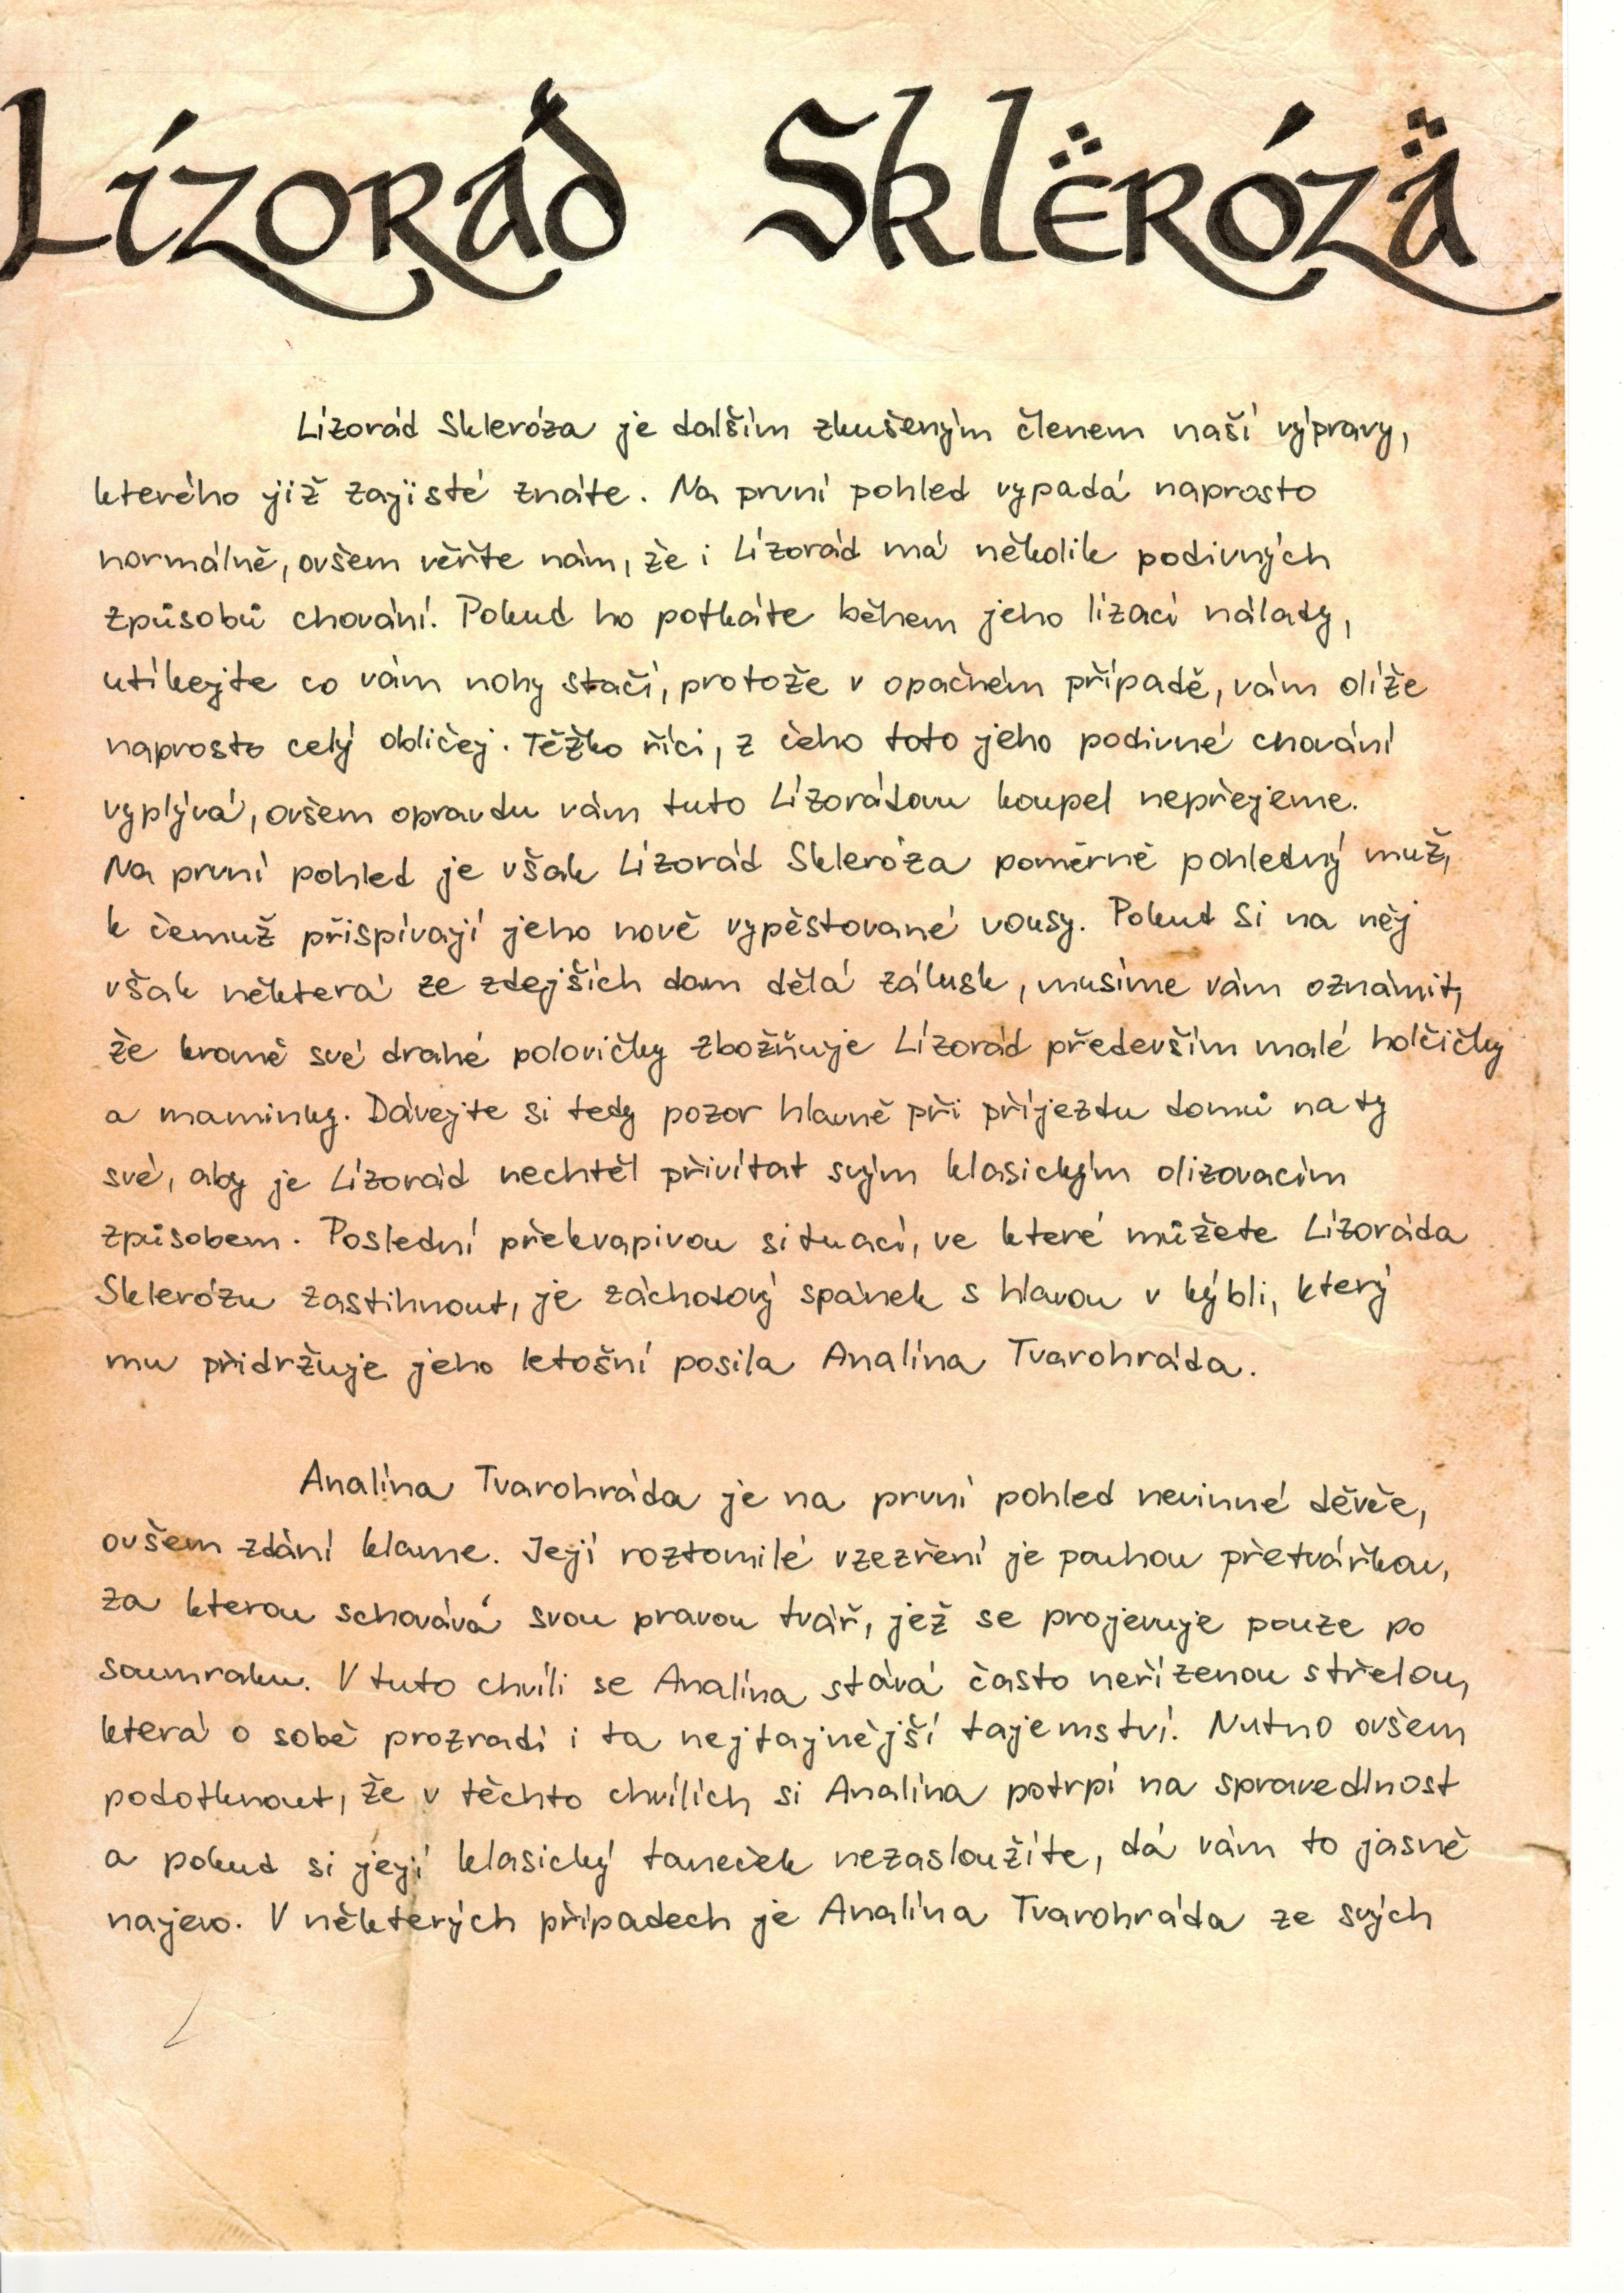 Lízorád Sklërózä
Lízorád Skleróza je dalším zkušeným členem naší výpravy,
kterého již zajisté znáte. Na první pohled vypadá naprosto
normálně, ovšem věřte nám, že i Lízorád má několik podivných
způsobů chování. Pokud ho potkáte během jeho lízací nálady,
utíkejte co vám nohy stačí, protože v opačném případě, vám olíže
naprosto celý obličej. Těžko říci, z čeho toto jeho podivné chování
vyplývá, ovšem opravdu vám tuto Lízorádovu koupel nepřejeme.
Na první pohled je však Lízorád Skleróza poměrně pohledný muž,
k čemuž přispívají jeho nově vypěstované vousy. Pokud si na něj
však některá ze zdejších dam dělá zálusk, musíme vám oznámit,
že kromě své drahé polovičky zbožňuje Lízorád především malé holčičky
a maminky. Dávejte si tedy pozor hlavně při příjezdu domů na ty
své, aby je Lízorád nechtěl přivítat svým klasickým olizovacím
způsobem. Poslední překvapivou situací, ve které můžete Lízoráda
Sklerózu zastihnout, je záchodový spánek s hlavou v kýbli, který
mu přidržuje jeho letošní posila Analína Tvarohráda.
Analína Tvarohráda je na první pohled nevinné děvče,
ovšem zdání klame. Její roztomilé vzezření je pouhou přetvářkou,
za kterou schovává svou pravou tvář, jež se projevuje pouze po
soumraku. V tuto chvíli se Analína stává často neřízenou střelou,
která o sobě prozradí i ta nejtajnější tajemství. Nutno ovšem
podotknout, že v těchto chvílích si Analína potrpí na spravedlnost
a pokud si její klasický taneček nezasloužíte, dá vám to jasně
najevo. V některých případech je Analína Tvarohráda ze svých